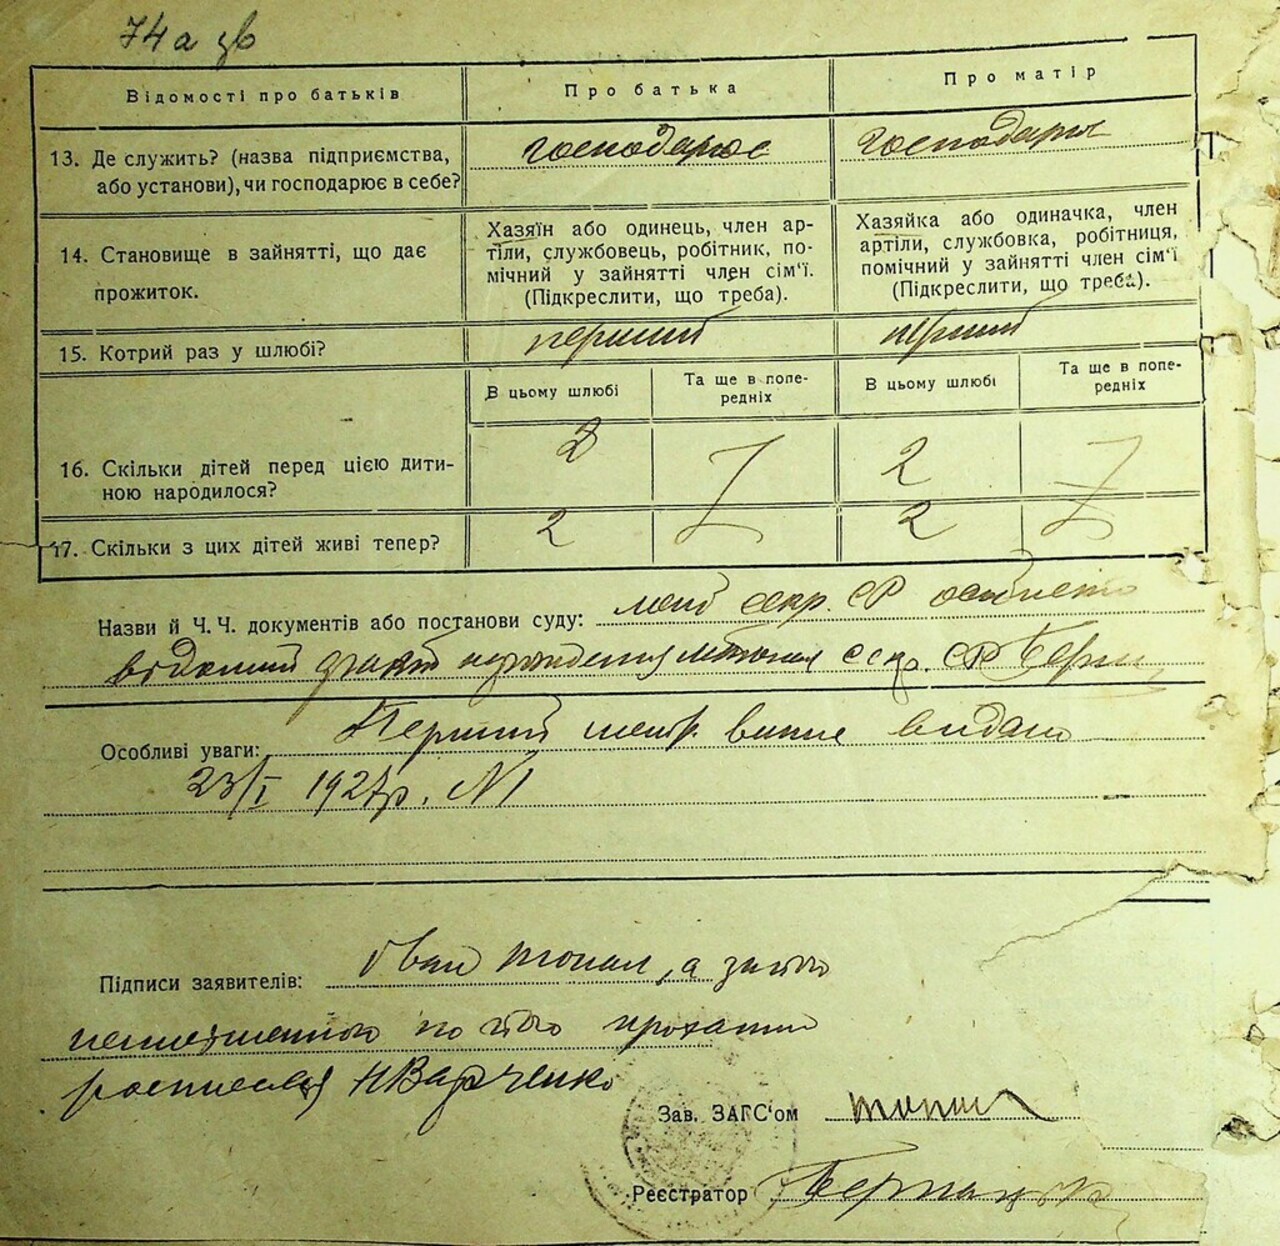 74 а зв
Відомості про батьків
Про батька
Про матір
13. Де служить? (назва підприємства,
або установи), чи господарює в себе?
господарює
господарює
14. Становище в зайнятті, що дає
прожиток.
Хазяїн або одинець, член ар-
тіли, службовець, робітник, по-
мічний у зайнятті член сім'ї.
(Підкреслити, що треба).
Хазяйка або одиначка, член
артіли, службовка, робітниця,
помічний у зайнятті член сім'ї
(Підкреслити, що треба).
15. Котрий раз у шлюбі?
перший
перший
В цьому шлюбі
Та ще в попе-
редніх
В цьому шлюбі
Та ще в попе-
редніх
16. Скільки дітей перед цією дити-
ною народилося?
2
2
17. Скільки з цих дітей живі тепер?
2
2
Назви й Ч. Ч. документів або постанови суду: секр. СР особисто
відомий факт народження секр. СР
Особливі уваги: Перший видано
23/I 1927 р. N 1
Підписи заявителів: Іван а за його
неписьменного по його прохання
росписався Н Варченко
Зав. ЗАГС'ом
Реєстратор